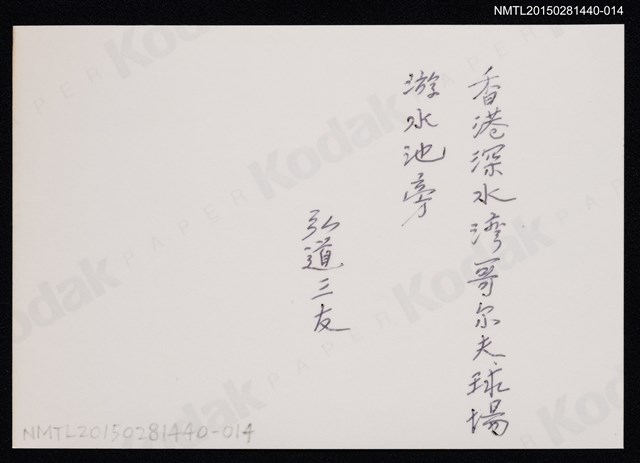 NMTL20150281440-014
香港深水湾哥尔夫球場
游水池旁
弘道三友
NMTL20150281440-014
Kodak
PAPER
Kodak
PAPER
Kodak